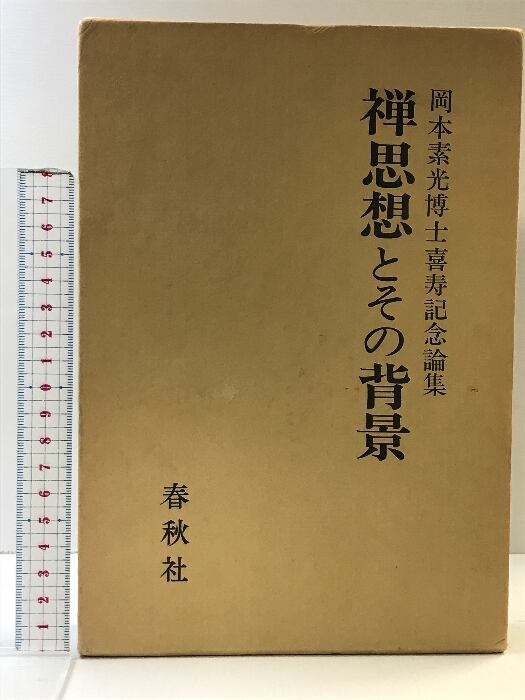 岡本素光博士喜寿記念論集
禅思想とその背景
春秋社
8
7
6
5
4
3
2
1
0
9
8
7
6
5
4
3
2
1